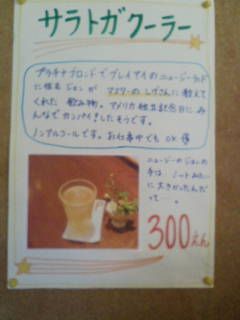 サラトガクーラー
プラチナブロンドでブレイアイのニュージーランド
に住む ジョンが マスターの しげさんに 教えて
くれた 飲み物。アメリカ独立記念日に み
んなで カンパイ!したそうです。
ノンアルコールです。お仕事中でも OK
ニュージーのジョンの
手は、ノートみたいに
に大きかったんだ
って…。
300えん